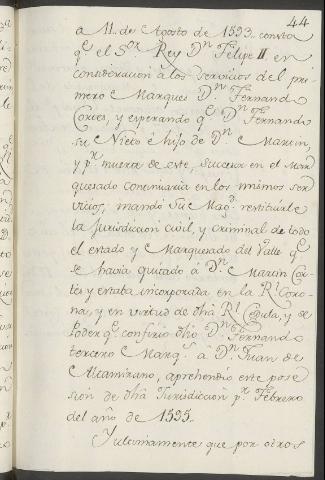 44
a 11. de Agosto de 1593. consta
q.e el S.or Rey D.n Felipe II. en
consideracion â los servicios del pri-
mero Marques D.n Fernando
Cortes, y esperando q.e D.n Fernando
su Nieto é hijo de D.n Martin,
y p.r muerte de este, Succesor en el Mar
quesado continuaria en los mismos ser
vicios, mandó Su Mag.d restituirle
la Jurisdiccion Civil, y criminal de todo
el estado y Marquesado del Valle q.e
se havia quitado â D.n Martin Cor-
tes y estaba incorporada en la R.l Coro-
na, y en virtud de dha R.l Cedula, y de
Poder q.e confirio dho D.n Fernando
tercero Marq.s â D.n Juan de
Altamirano, aprehendió este pose
sion de dha Jurisdiccion p.r Febrero
del año de 1595.
Y ultimamente que por otros